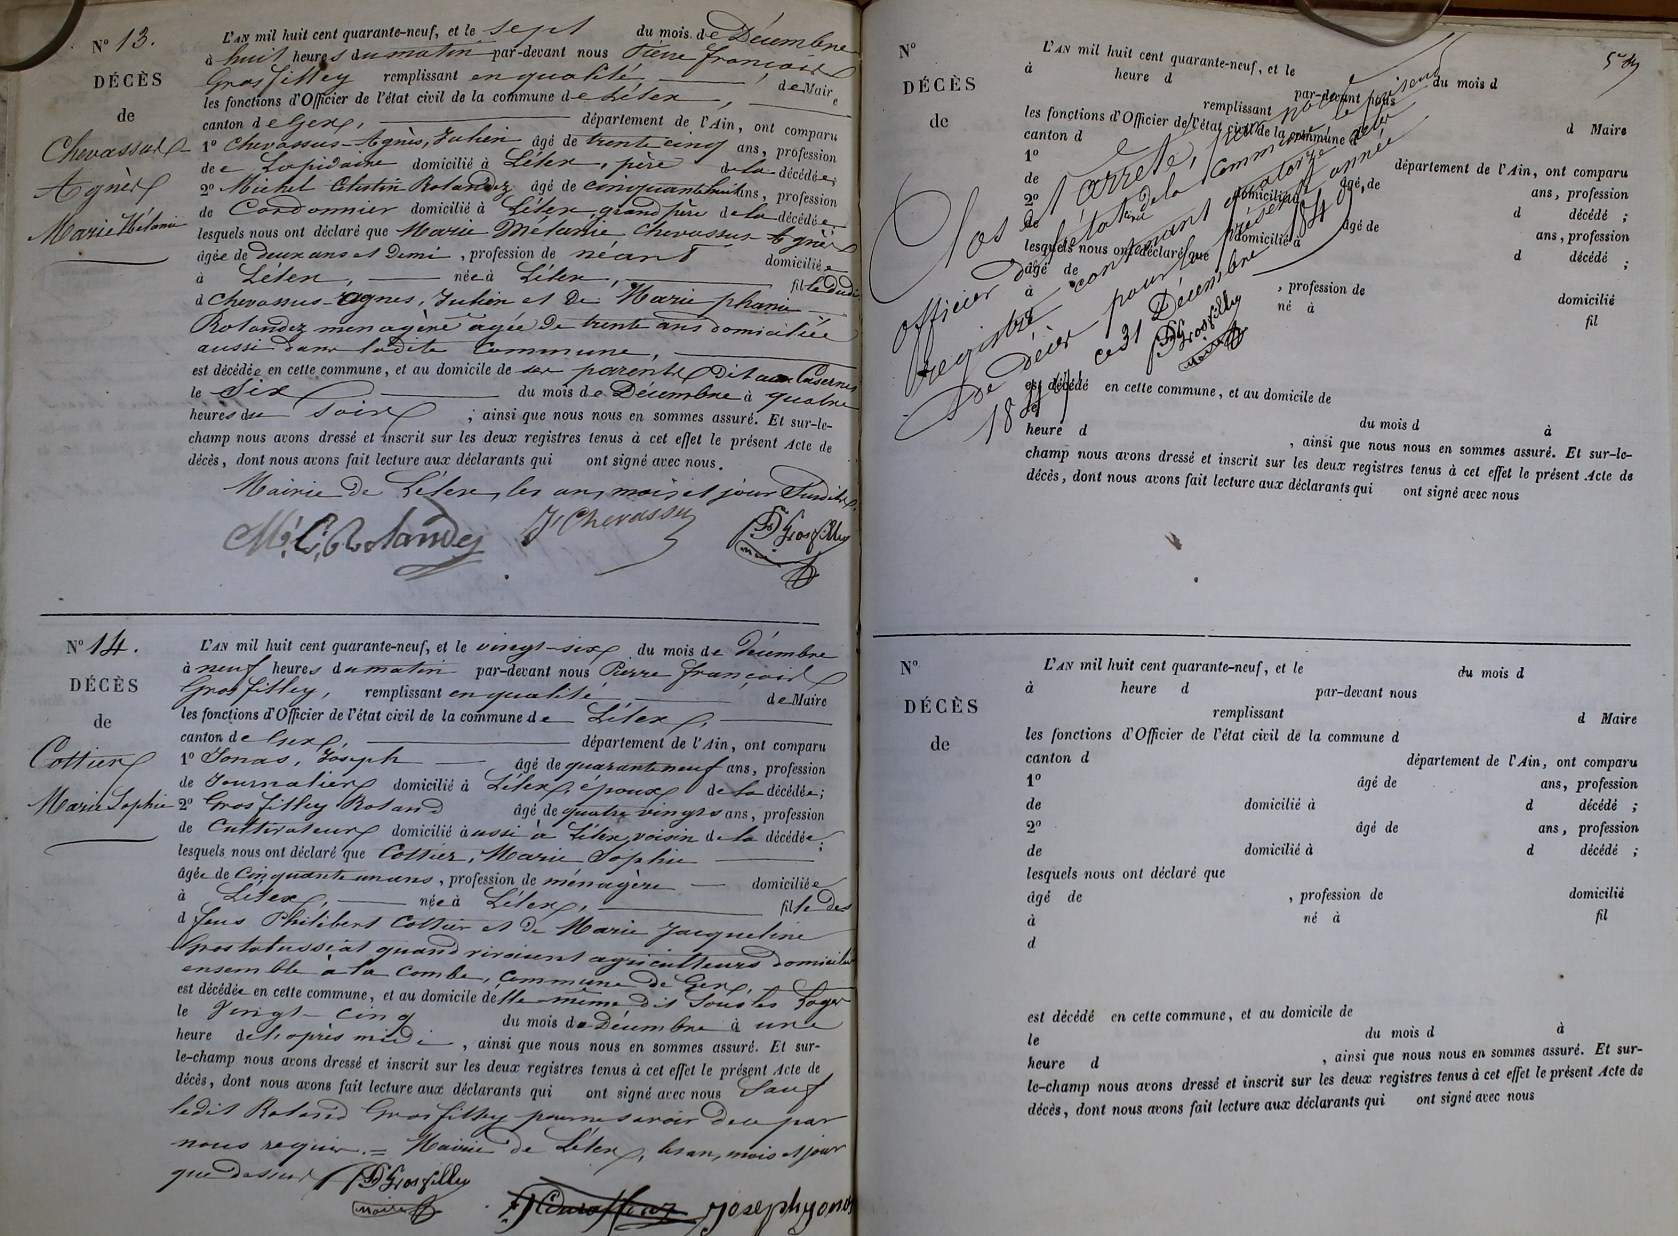 N° 13.
DÉCÈS
de
Chevassus
Agnès
Marie Mélanie
L'AN mil huit cent quarante-neuf, et le sept du mois de Décembre
à huit heures du matin par-devant nous Pierre François
Grosfilley remplissant en qualité de Maire
les fonctions d'Officier de l'état civil de la commune de Lélex,
canton de Gex, département de l'Ain, ont comparu
1° Chevassus-Agnès, Julien âgé de trente cinq ans, profession
de Lapidaire domicilié à Lélex, père de la décédée;
2° Michel Célestin Rolandez âgé de cinquante huit ans, profession
de Cordonnier domicilié à Lélex, grand père de la décédée
lesquels nous ont déclaré que Marie Mélanie Chevassus-Agnès
âgée de deux ans et demi, profession de néant domiciliée
à Lélex, née à Lélex, fille dudi
d Chevassus-Agnes, Julien et de Marie phanie
Rolandez menagère agée de trente ans domiciliée
aussi dans ladite Commune,
est décédée en cette commune, et au domicile de ses parents dit aux Casernes
le Six du mois de Décembre à quatre
heures du Soir ; ainsi que nous nous en sommes assuré. Et sur-le-
champ nous avons dressé et inscrit sur les deux registres tenus à cet effet le présent Acte de
décès, dont nous avons fait lecture aux déclarants qui ont signé avec nous.
Mairie de Lélex, les an, mois et jour Susdits.
M. C. Rolandez J. Chevassus P F Grosfilley
maire
N° 14.
DÉCÈS
de
Cottier
Marie Sophie
L'AN mil huit cent quarante-neuf, et le vingt-six du mois de décembre
à neuf heures du matin par-devant nous Pierre françois
Grosfilley, remplissant en qualité de Maire
les fonctions d'Officier de l'état civil de la commune de Lélex,
canton de Gex, département de l'Ain, ont comparu
1° Jonas, Joseph âgé de quarante neuf ans, profession
de Journalier domicilié à Lélex, époux de la décédée;
2° Grosfilley Roland âgé de quatre vingts ans, profession
de Cultivateur domicilié aussi à Lélex, voisin de la décédée;
lesquels nous ont déclaré que Cottier, Marie Sophie
âgée de Cinquante un ans, profession de ménagère domiciliée
à Lélex, née à Lélex, fille des
d feus Philibert Cottier et de Marie Jacqueline
quand vivaient agriculteurs domiciliés
ensemble à la Combe, Commune de Gex,
est décédée en cette commune, et au domicile d'elle-même dit Sous les
le Vingt-cinq du mois de Décembre à une
heure de l'après midi, ainsi que nous nous en sommes assuré. Et sur-
le-champ nous avons dressé et inscrit sur les deux registres tenus à cet effet le présent Acte de
décès, dont nous avons fait lecture aux déclarants qui ont signé avec nous Sauf
ledit Roland Grosfilley pour ne savoir de ce par
nous requis. = Mairie de Lélex, les an, mois et jour
que dessus P F Grosfilley
maire Joseph Jonas
N°
DÉCÈS
de
L'AN mil huit cent quarante-neuf, et le du mois d
à heure d par-devant nous
remplissant d Maire
les fonctions d'Officier de l'état civil de la commune d
canton d département de l'Ain, ont comparu
1° âgé de ans, profession
de domicilié à d décédé ;
2° âgé de ans, profession
de domicilié à d décédé ;
lesquels nous ont déclaré que
âgé de , profession de domicilié
à né à fil
Clos et arrêté, par nous
officier de l'état de la Commune de le présent
registre contenant quatorze actes
De décès pour la présente année
1849 ce 31 Décembre 1849
P F Grosfilley
maire
est décédé en cette commune, et au domicile de
le du mois d à
heure d , ainsi que nous nous en sommes assuré. Et sur-le-
champ nous avons dressé et inscrit sur les deux registres tenus à cet effet le présent Acte de
décès, dont nous avons fait lecture aux déclarants qui ont signé avec nous
N°
DÉCÈS
de
L'AN mil huit cent quarante-neuf, et le du mois d
à heure d par-devant nous
remplissant d Maire
les fonctions d'Officier de l'état civil de la commune d
canton d département de l'Ain, ont comparu
1° âgé de ans, profession
de domicilié à d décédé ;
2° âgé de ans, profession
de domicilié à d décédé ;
lesquels nous ont déclaré que
âgé de , profession de domicilié
à né à fil
d
est décédé en cette commune, et au domicile de
le du mois d à
heure d , ainsi que nous nous en sommes assuré. Et sur-
le-champ nous avons dressé et inscrit sur les deux registres tenus à cet effet le présent Acte de
décès, dont nous avons fait lecture aux déclarants qui ont signé avec nous